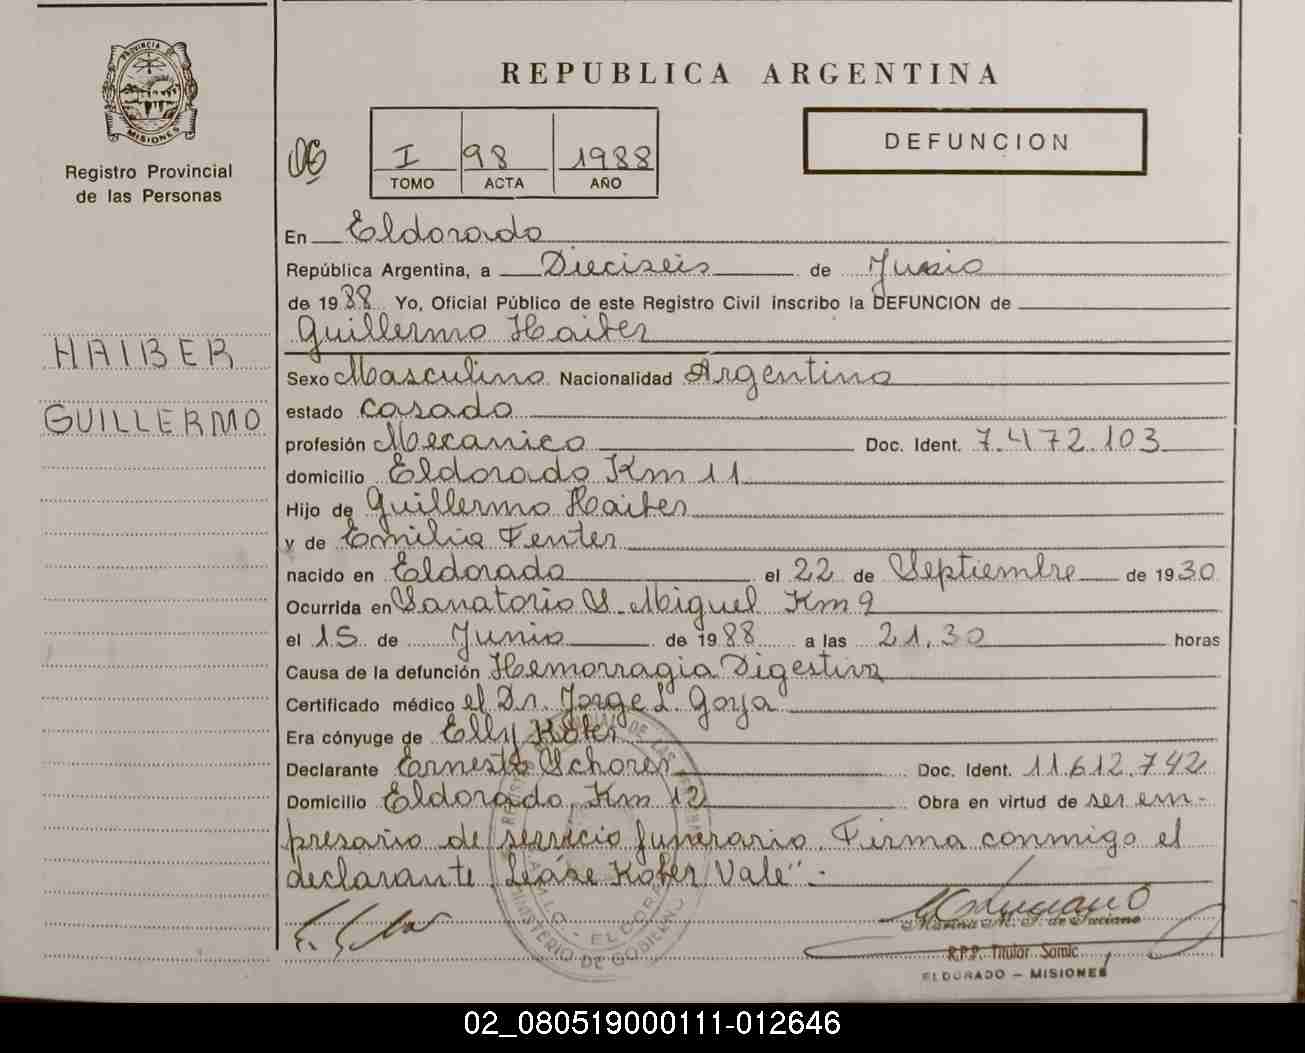 PROVINCIA DE
MISIONES
Registro Provincial
de las Personas
HAIBER
GUILLERMO
REPUBLICA ARGENTINA
I 98 1988
TOMO ACTA AÑO
DEFUNCION
En Eldorado
República Argentina, a Dieciseis de Junio
de 1988 Yo, Oficial Público de este Registro Civil inscribo la DEFUNCION de
Guillermo Haiber
Sexo Masculino Nacionalidad Argentino
estado casado
profesión Mecanico Doc. Ident. 7.472.103
domicilio Eldorado Km 11
Hijo de Guillermo Haiber
y de Emilia Fenter
nacido en Eldorado el 22 de Septiembre de 1930
Ocurrida en Sanatorio S. Miguel Km 9
el 15 de Junio de 1988 a las 21,30 horas
Causa de la defunción Hemorragia Digestiva
Certificado médico el Dr. Jorge L. Goya
Era cónyuge de Elly Kofer
Declarante Ernesto Schoren Doc. Ident. 11.612.742
Domicilio Eldorado, Km 12 Obra en virtud de ser em-
presario de servicio funerario. Firma conmigo el
declarante "Leáse Kofer Vale".-
MINISTERIO DE GOBIERNO
Marina M. F. de Luciano
R.P.P. Titular Samic
ELDORADO - MISIONES
02_080519000111-012646